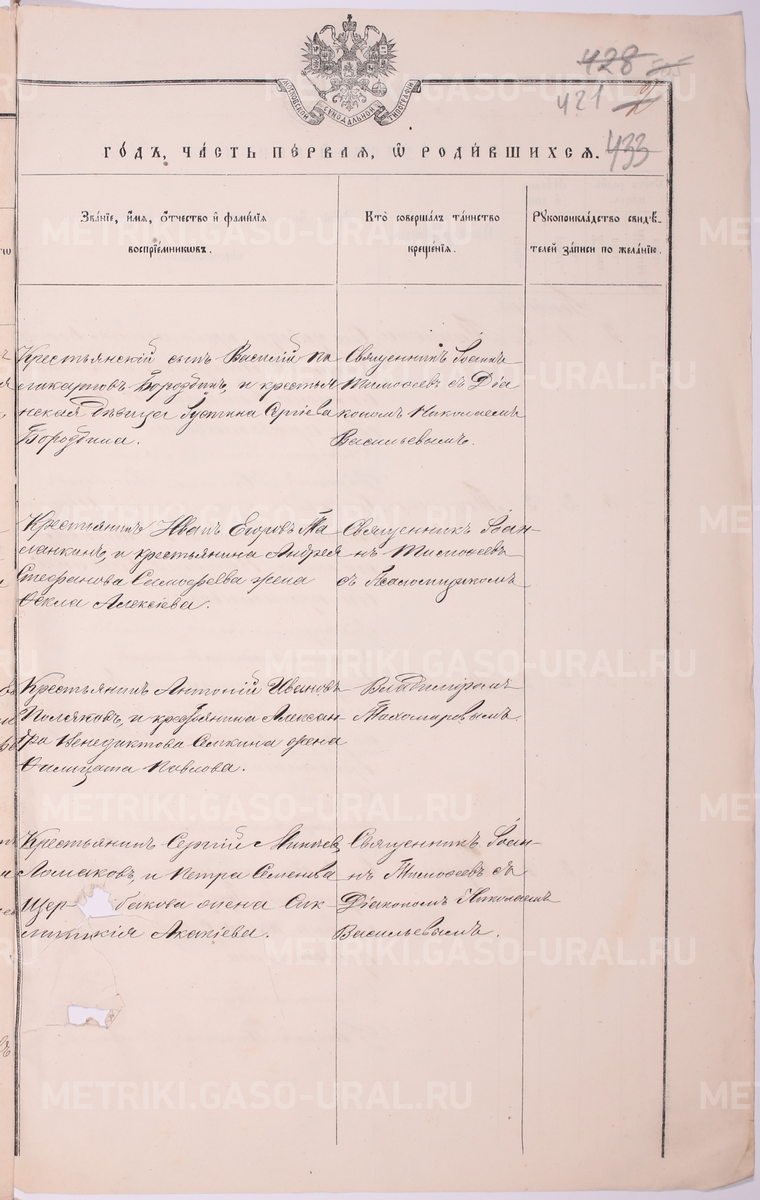 428
421
433
МОСКОВСКОЙ СУНОДАЛЬНОЙ ТИПОГРАФІИ
ГО́ДЪ, ЧА́СТЬ ПЕ́РВАЯ, Ѿ РОДИ́ВШИХСЯ.
Зва́нїе, и҆́мя, ѻ҆́тчество и҆ фами́лїя
воспрїе́мникѡвъ.
Кто̀ соверша́лъ та́инство
креще́нїя.
Рꙋкоприкла́дство свидѣ́-
телей за́писи по жела́нїю.
Крестьянскій сынъ Василій По
ликарповъ Бородинъ, и крестья
нская дѣвица Іустина Сергіева
Бородина.
Священникъ Іоаннъ
Тимофеевъ съ Діа
кономъ Николаемъ
Васильевымъ.
Крестьянинъ Иванъ Егоровъ
и крестьянина Андрея
Стефанова жена
Ѳекла Алексіева.
Священникъ Іоан-
нъ Тимофеевъ
съ Псаломщикомъ
Крестьянинъ Антоній Ивановъ
Поляковъ, и крестьянина Алексан-
дра Венедиктова Семкина жена
Филицата Павлова.
Владиміромъ
Тихомировымъ.
Крестьянинъ Сергій
Ломаковъ, и Петра Семенова
Щербакова жена Сик-
литикія Акакіева.
Священникъ Іоан-
нъ Тимофеевъ съ
Діакономъ Николаемъ
Васильевымъ.
METRIKI.GASO-URAL.RU